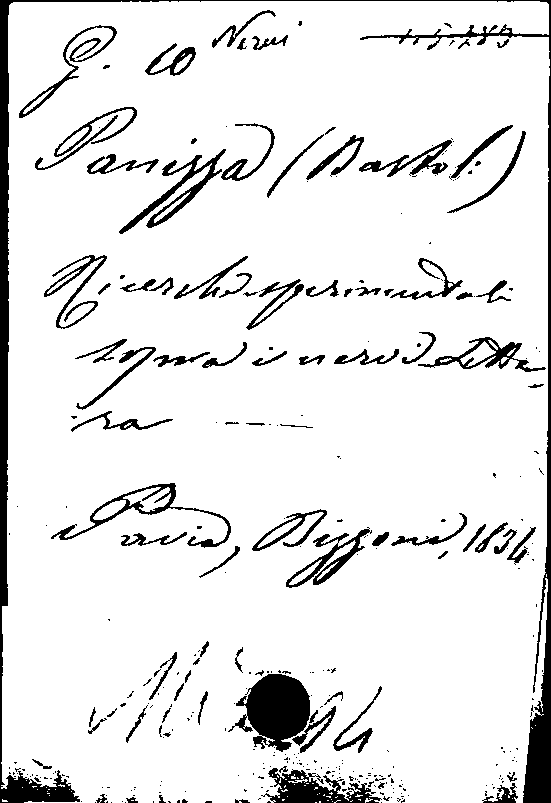 G. 10 Nervi 15.283
Panizza (Bartol:)
Ricerche sperimentali
sopra i nervi. Lette-
ra ----
Pavia, Bizzoni, 1834